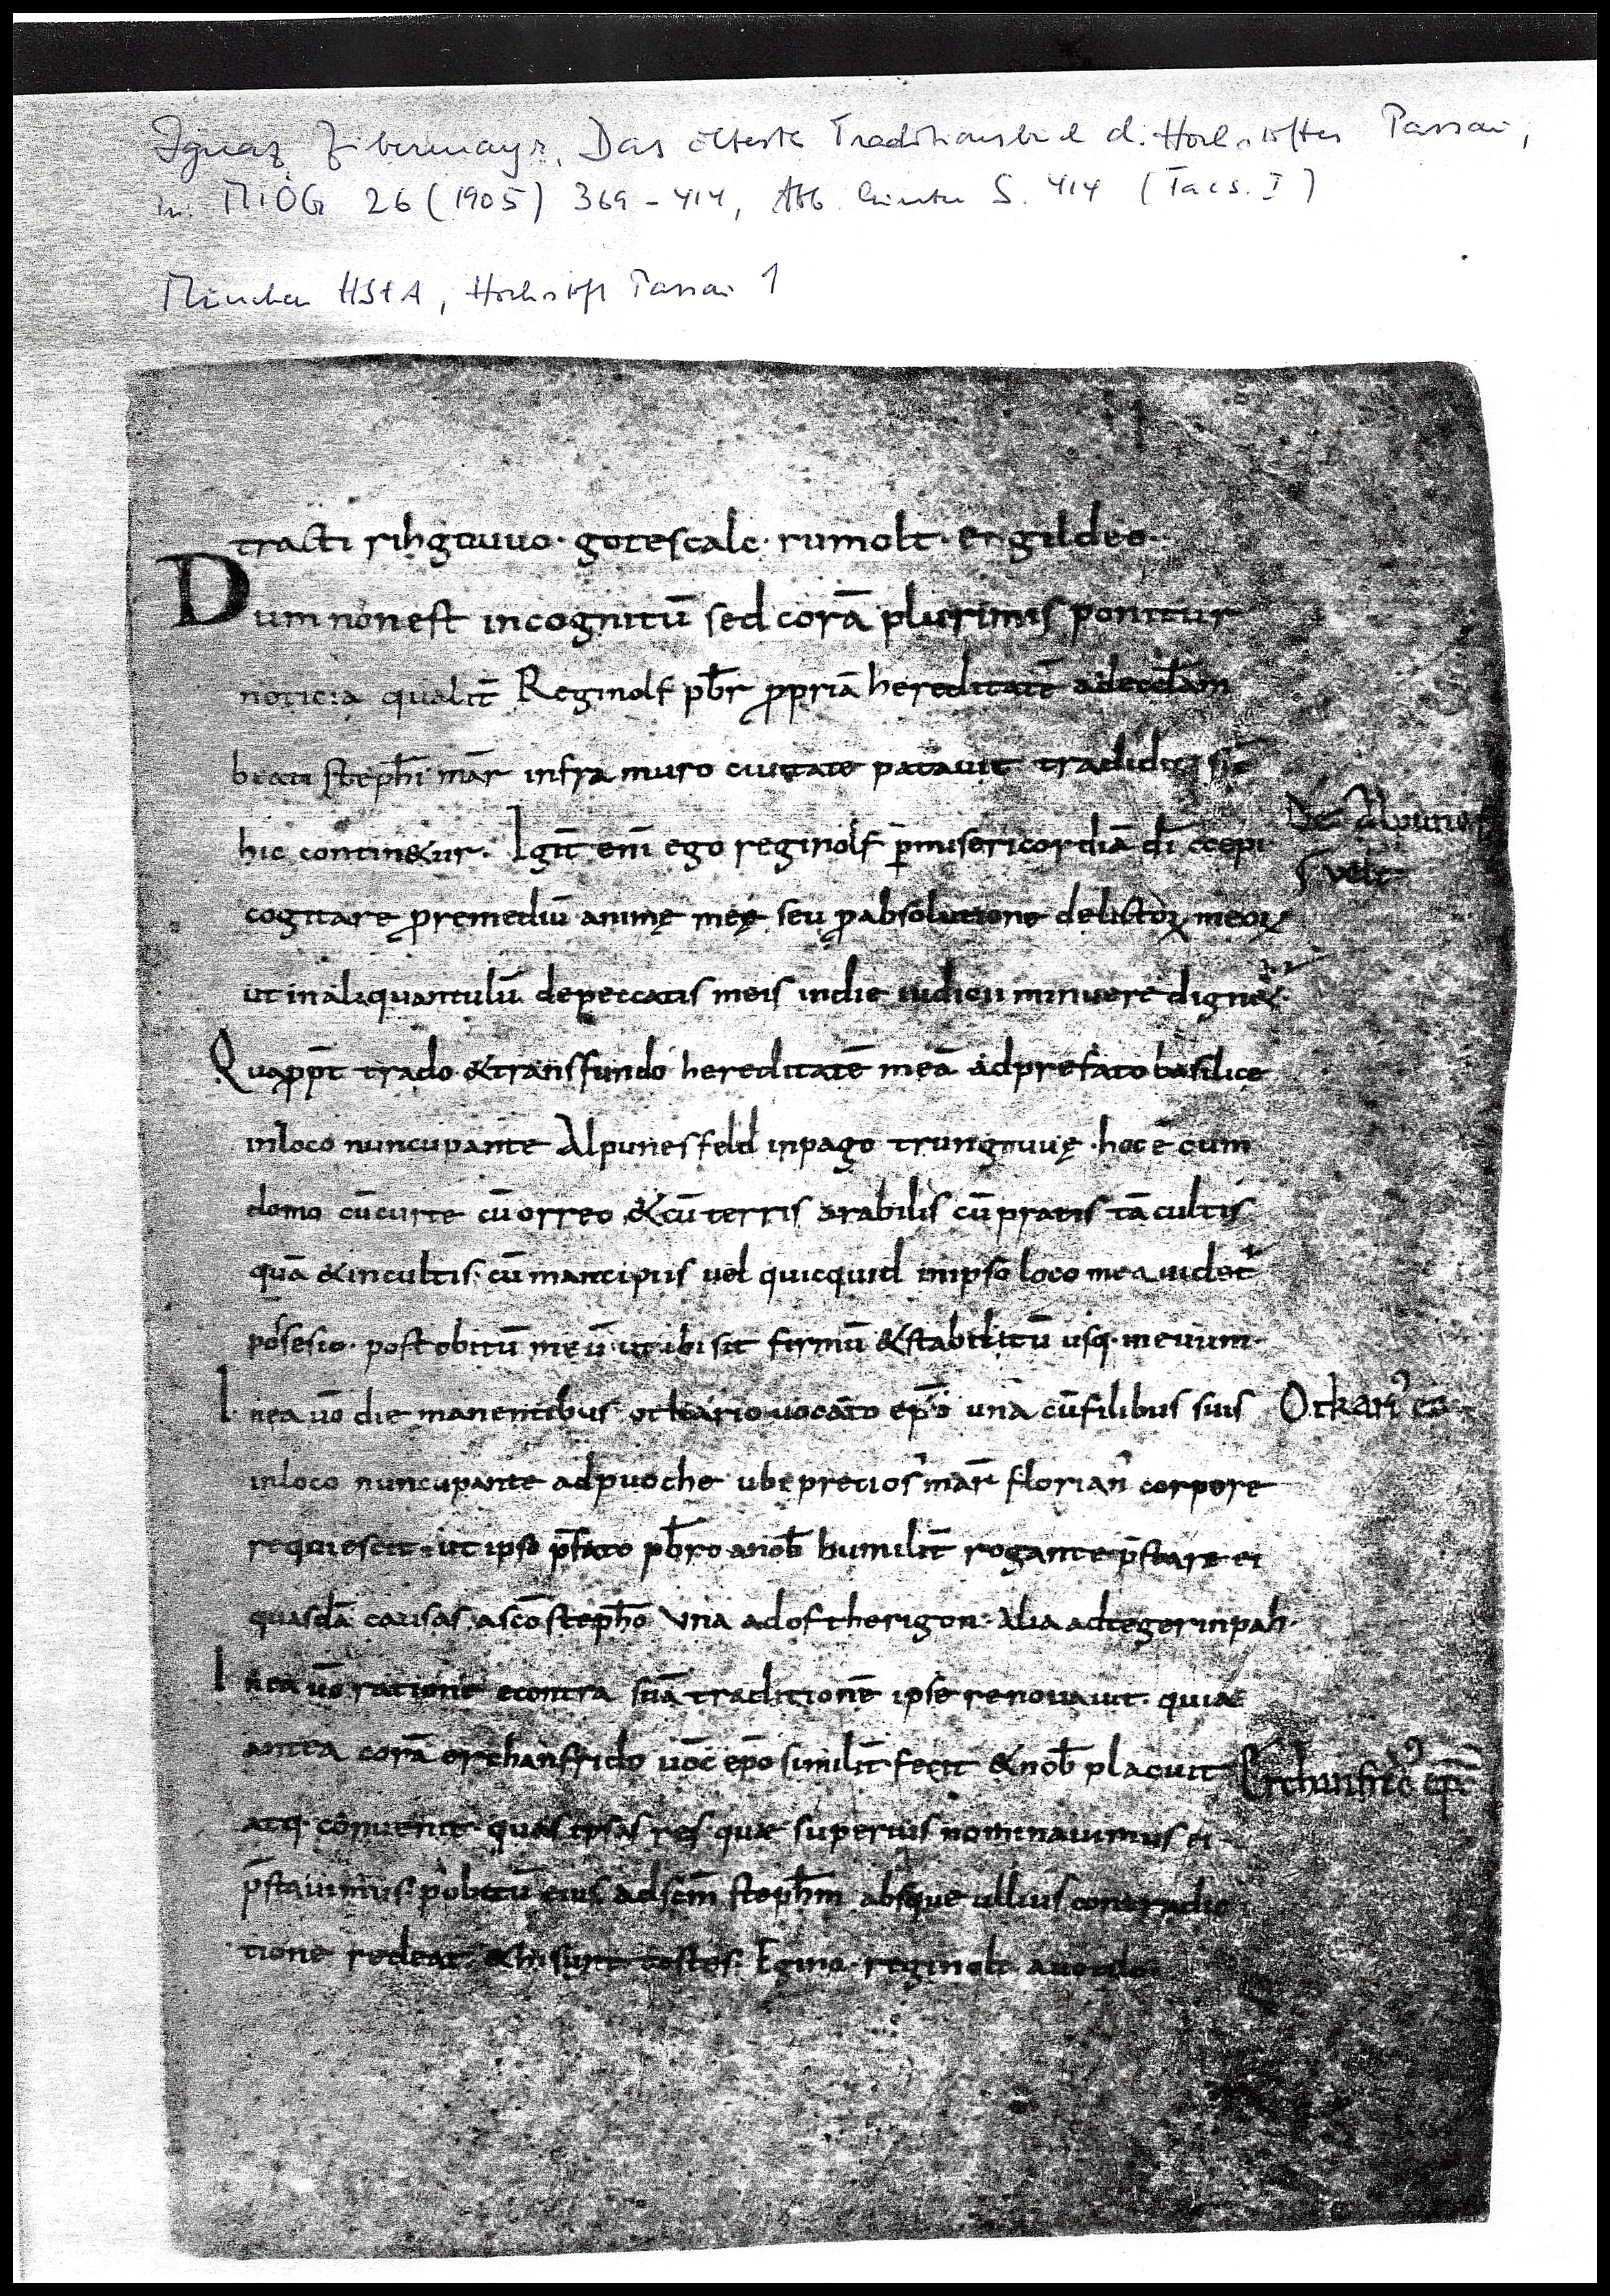 Ignaz Zibermayr, Das älteste Traditionsbuch d. Hochstiftes Passau,
in: MIÖG 26 (1905) 369-414, Abb. hinter S. 414 (Facs. I)
München HStA, Hochstift Passau 1
tracti rihgauuo· gotescalc· rumolt· engildeo·
Dum non est incognitū sed corā plurimis ponitur
noticia qualit̄ Reginolf pb̄r ꝓpriā hereditatē ad eccl̄am
beati steph̄i mār infra muro ciuitate patauit tradidit
hic contin&ur· Igit̄ eni ego reginolf p̄ misericordiā dī coepi
De Alpunes
uelt
cogitare ꝓ remediū animę meę seu ꝓ absolutione delictoꝝ meoꝝ
ut in aliquantulū de peccatis meis in die iudicii minuere dign&·
Quapp̄t trado & transfundo hereditatē meā ad prefato basilice
in loco nuncupante Alpunesfeld in pago trungauuę· hoc ē cum
domo cū curte cū orreo & cū terris arabilis cū pratis tā cultis
quā & incultis· cū mancipiis uel quicquid in ipso loco mea uidet̄
possesio· post obitū meū ut ibi sit firmū & stabilitū usq· in euum·
In ea uō die manentibus otkario uocato ep̄o unā cū filibus suis
Otkari᾽ ep̄
in loco nuncupante ad puoche ubi precios᾽ mār florian᾽ corpore
requiescit· ut ipso p̄fato pb̄ro a nob̄ humilit̄ rogante p̄stare ei
quasdā causas a sc̄o steph̄o Una ad oftherigon· Alia ad tegerinpah·
In ea uō ratione econtra suā traditionē ipse renouauit· quia
antea corā erchanfrido uoc̄ ep̄o similit̄ fecit & nob̄ placuit
Erchanfrid᾽ ep̄
atq· conuenit quas ipsas res quae superius nominauimus ei
p̄stauimus· p̄ obitū eius ad sc̄m steph̄m absque ullius contradic
tione redeat· & hi sunt testes· Egino· reginolt